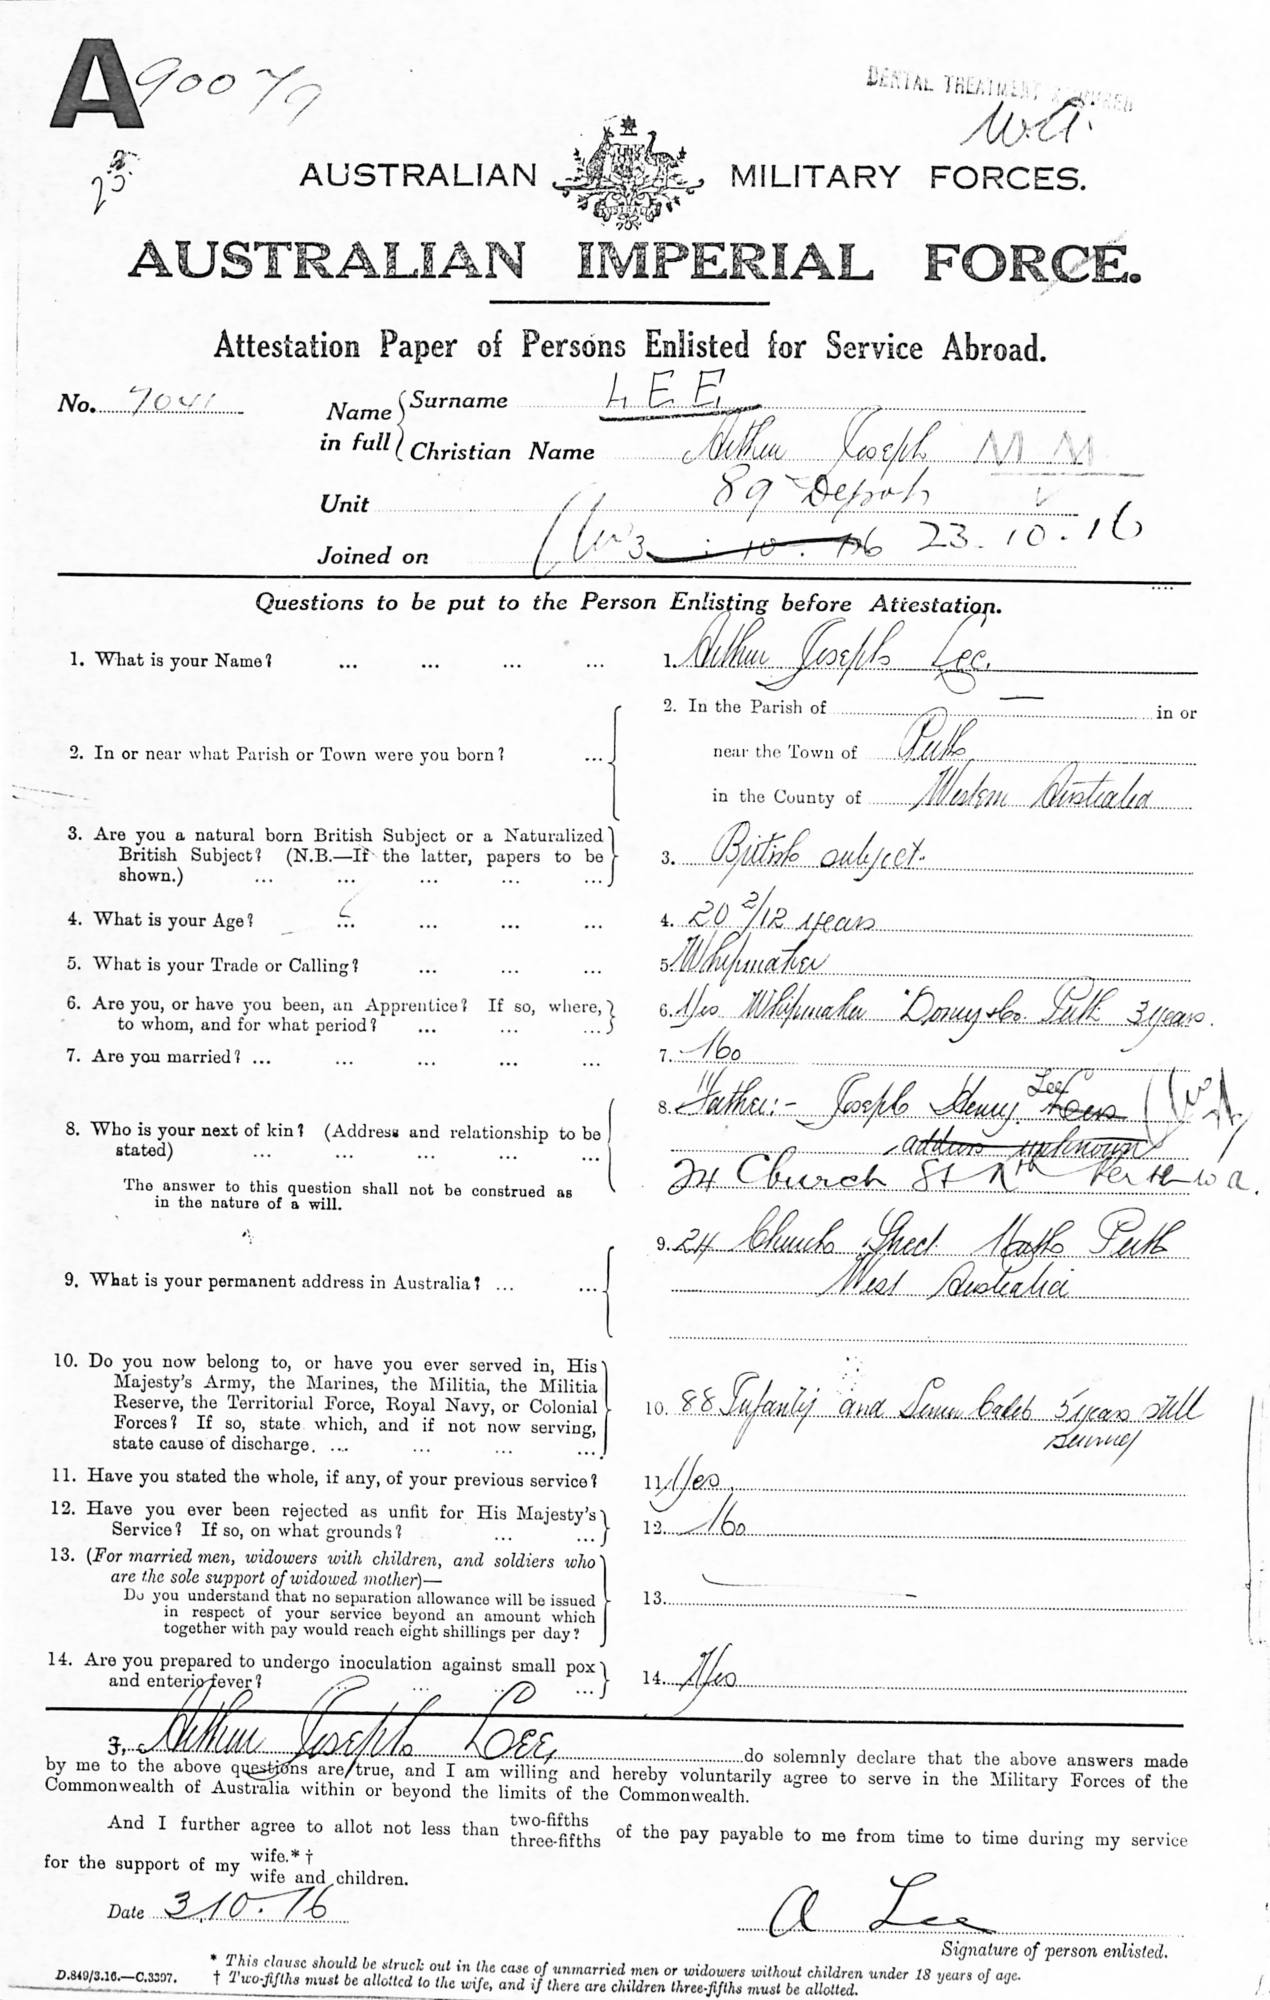 A 90079
DENTAL TREATMENT REQUIRED
W.A.
AUSTRALIAN MILITARY FORCES.
AUSTRALIAN IMPERIAL FORCE.
Attestation Paper of Persons Enlisted for Service Abroad.
No. 7041
Name in full
Surname LEE
Christian Name Arthur Joseph MM
Unit 89 Depot
Joined on 3.10.16 23.10.16
Questions to be put to the Person Enlisting before Attestation.
1. What is your Name? ... ... ... ... 1. Arthur Joseph Lee.
2. In or near what Parish or Town were you born? ...
2. In the Parish of — in or
near the Town of Perth
in the County of Western Australia
3. Are you a natural born British Subject or a Naturalized
British Subject? (N.B.—If the latter, papers to be
shown.) ... ... ... ... ...
3. British subject.
4. What is your Age? ... ... ... ... 4. 20 2/12 years
5. What is your Trade or Calling? ... ... ... 5. Whipmaker
6. Are you, or have you been, an Apprentice? If so, where,
to whom, and for what period? ... ... ...
6. Yes Whipmaker Perth 3 years.
7. Are you married? ... ... ... ... ... 7. No
8. Who is your next of kin? (Address and relationship to be
stated) ... ... ... ... ...
The answer to this question shall not be construed as
in the nature of a will.
8. Father:- Joseph Henry Lees Lee
address unknown
24 Church St Nth Perth W a.
9. What is your permanent address in Australia? ... ...
9. 24 Church Street North Perth
West Australia
10. Do you now belong to, or have you ever served in, His
Majesty's Army, the Marines, the Militia, the Militia
Reserve, the Territorial Force, Royal Navy, or Colonial
Forces? If so, state which, and if not now serving,
state cause of discharge. ... ... ... ...
10. 88 Infantry and Senior Cadet 5 years still
serving
11. Have you stated the whole, if any, of your previous service? 11. Yes.
12. Have you ever been rejected as unfit for His Majesty's
Service? If so, on what grounds? ... ...
12. No
13. (For married men, widowers with children, and soldiers who
are the sole support of widowed mother)—
Do you understand that no separation allowance will be issued
in respect of your service beyond an amount which
together with pay would reach eight shillings per day?
13. —
14. Are you prepared to undergo inoculation against small pox
and enteric fever? ... ... ... ...
14. Yes
I, Arthur Joseph Lee, do solemnly declare that the above answers made
by me to the above questions are true, and I am willing and hereby voluntarily agree to serve in the Military Forces of the
Commonwealth of Australia within or beyond the limits of the Commonwealth.
And I further agree to allot not less than two-fifths three-fifths of the pay payable to me from time to time during my service
for the support of my wife.*† wife and children.
Date 3.10.16
A Lee
Signature of person enlisted.
* This clause should be struck out in the case of unmarried men or widowers without children under 18 years of age.
D.849/3.16.—C.3397. † Two-fifths must be allotted to the wife, and if there are children three-fifths must be allotted.